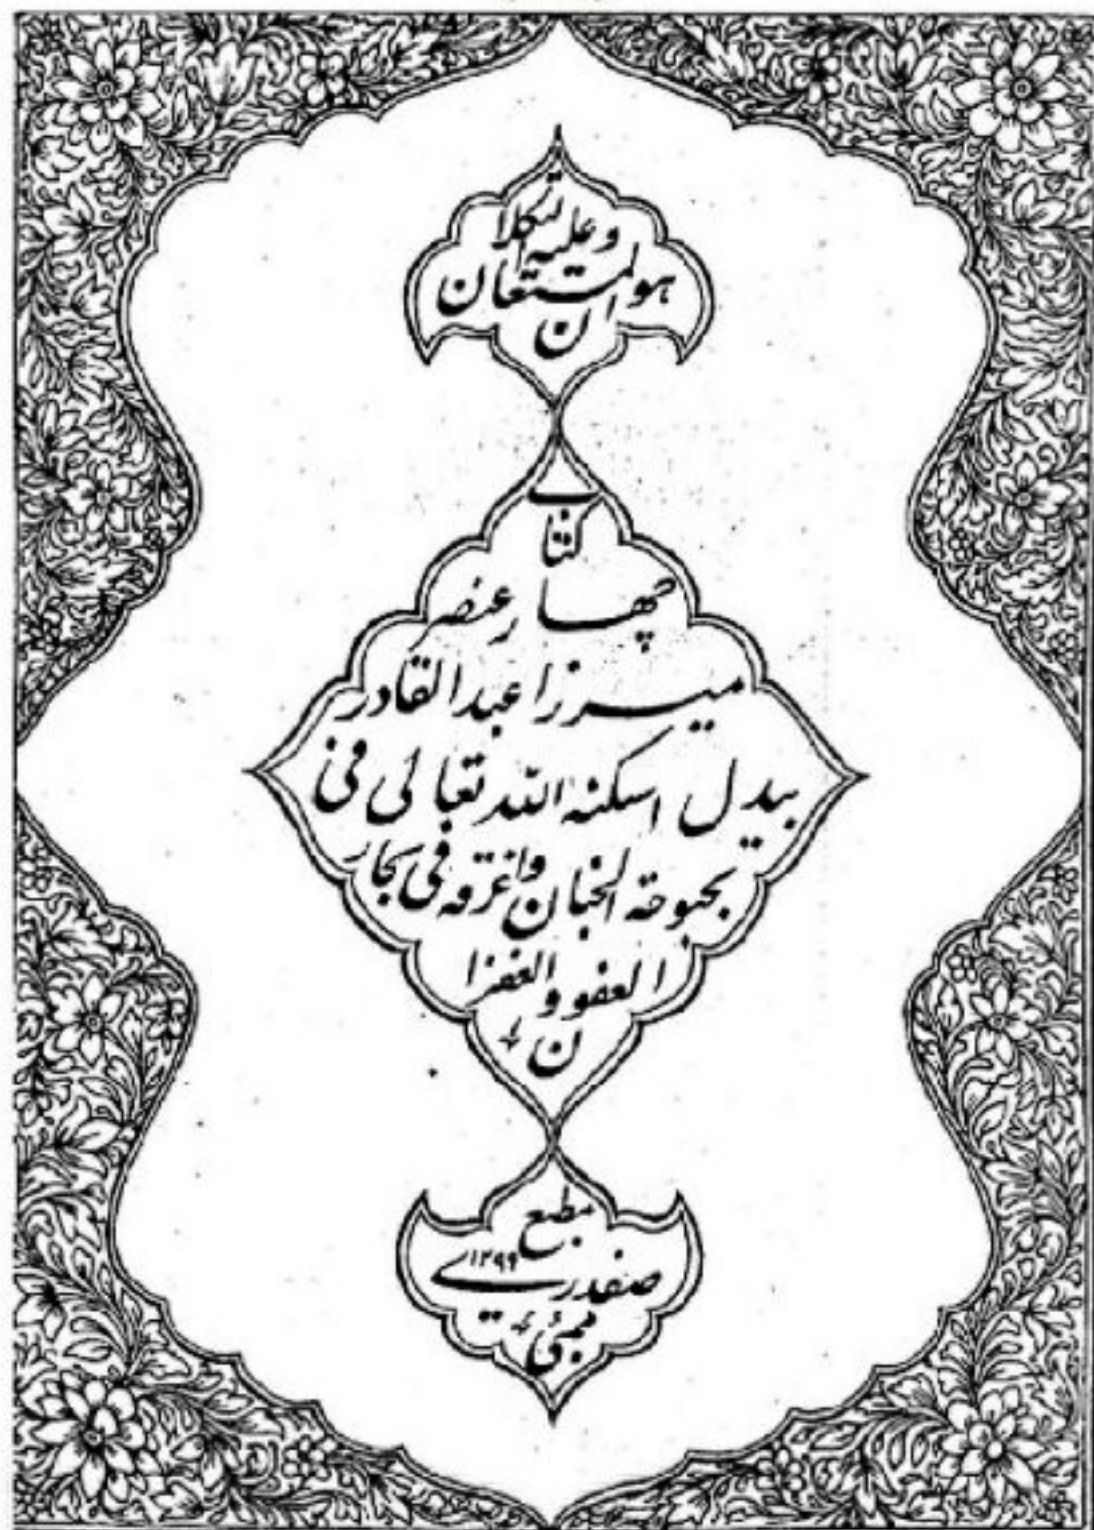 هوالمستعان
وعلیه التکلان
کتاب
چهار عنصر
میرزا عبدالقادر
بیدل اسکنه الله تعالی فی
بحبوحة الجنان واغرقه فی بحار
العفو والغفران
مطبع
صفدری ۱۲۹۹
بمبئی